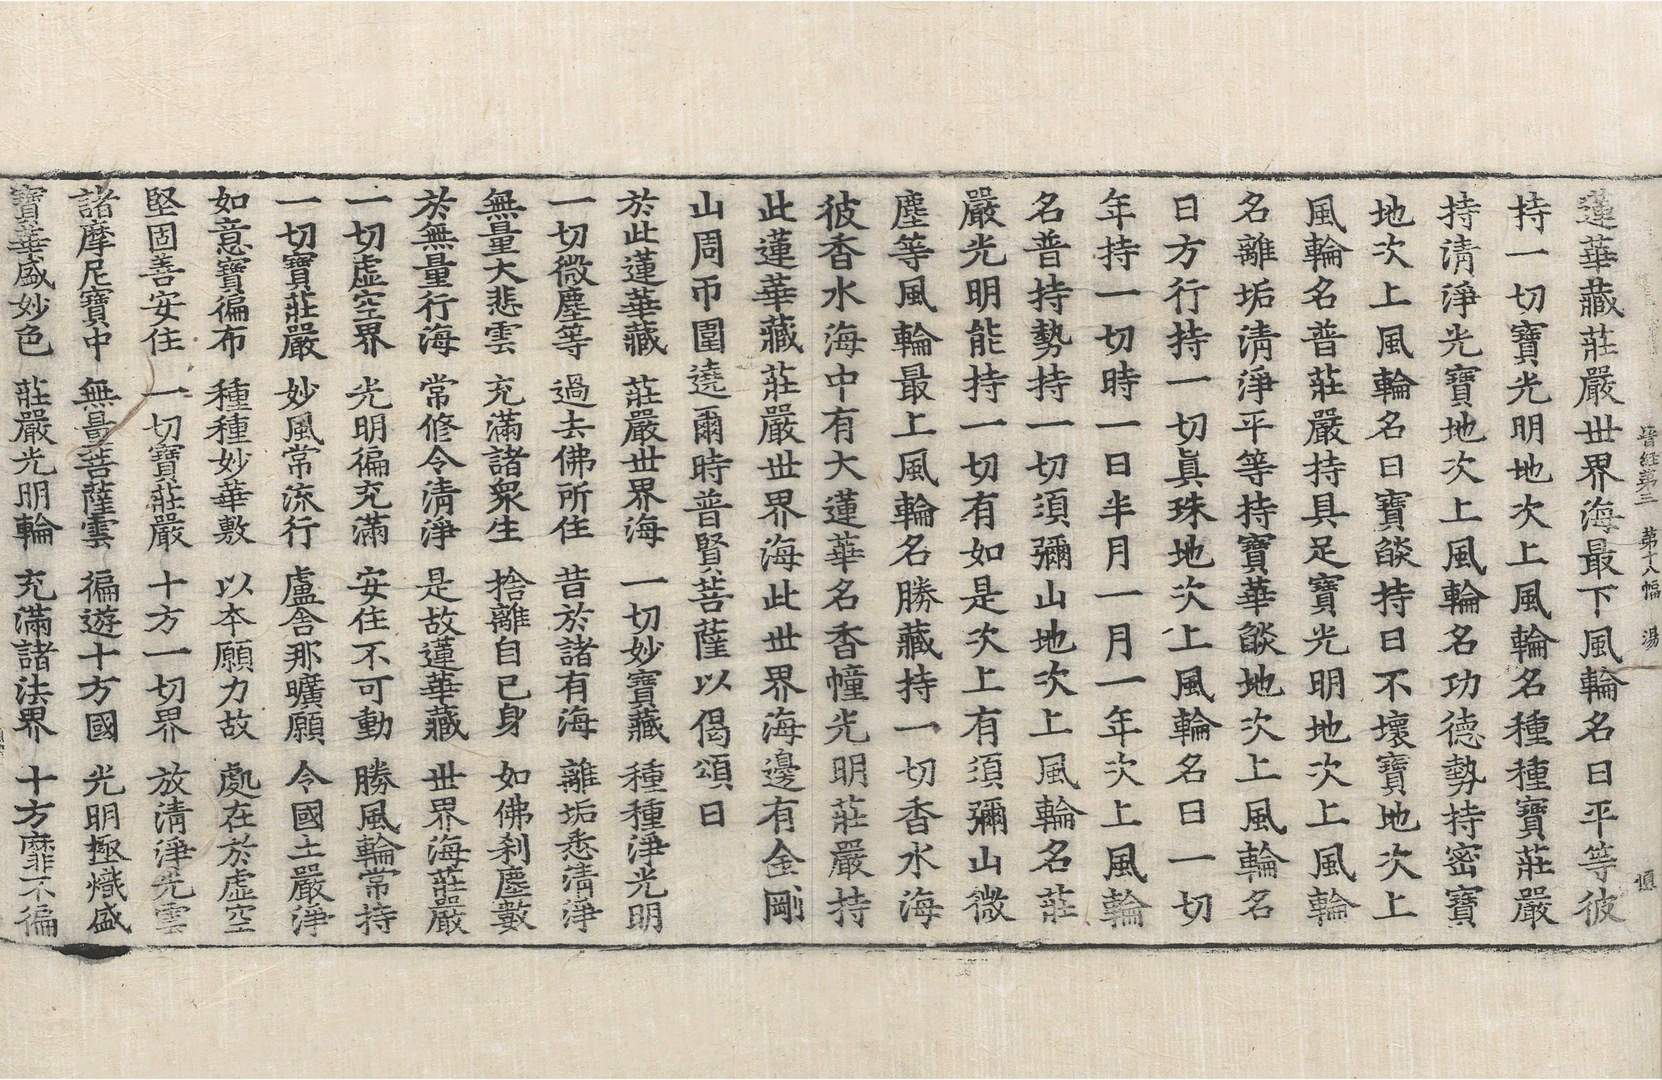 晉經第三　第十八幅　湯
蓮華藏莊嚴世界海最下風輪名曰平等彼
持一切寶光明地次上風輪名種種寶莊嚴
持清淨光寶地次上風輪名功德勢持密寶
地次上風輪名曰寶燄持日不壞寶地次上
風輪名普莊嚴持具足寶光明地次上風輪
名離垢清淨平等持寶華燄地次上風輪名
日方行持一切真珠地次上風輪名曰一切
年持一切時一日半月一月一年次上風輪
名普持勢持一切須彌山地次上風輪名莊
嚴光明能持一切有如是次上有須彌山微
塵等風輪最上風輪名勝藏持一切香水海
彼香水海中有大蓮華名香幢光明莊嚴持
此蓮華藏莊嚴世界海此世界海邊有金剛
山周帀圍遶爾時普賢菩薩以偈頌曰
於此蓮華藏　莊嚴世界海　一切妙寶藏　種種淨光明
一切微塵等　過去佛所住　昔於諸有海　離垢悉清淨
無量大悲雲　充滿諸衆生　捨離自己身　如佛刹塵數
於無量行海　常修令清淨　是故蓮華藏　世界海莊嚴
一切虛空界　光明徧充滿　安住不可動　勝風輪常持
一切寶莊嚴　妙風常流行　盧舍那曠願　令國土嚴淨
如意寶徧布　種種妙華敷　以本願力故　處在於虛空
堅固善安住　一切寶莊嚴　十方一切界　放清淨光雲
諸摩尼寶中　無量菩薩雲　徧遊十方國　光明極熾盛
寶華盛妙色　莊嚴光明輪　充滿諸法界　十方靡不徧